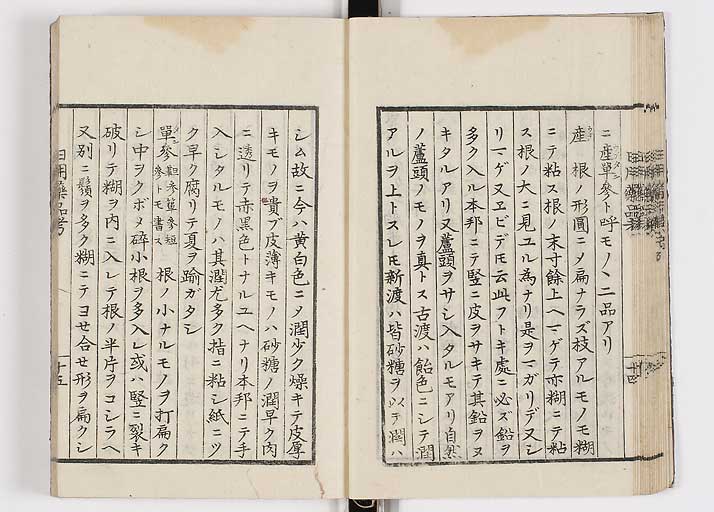 ニ産單參ト呼モノヽ二品アリ
産 根ノ形圓ニメ扁ナラズ枝アルモノモ糊
ニテ粘ス根ノ末寸餘上ヘマゲテ亦糊ニテ粘
ス根ノ大ニ見ユル為ナリ是ヲマガリデ又シ
リマゲ又ヱビデモ云此フトキ處ニ必ズ鉛ヲ
多ク入ル本邦ニテ竪ニ皮ヲサキテ其鉛ヲヌ
キタルアリ又蘆頭ヲサシ入タルモアリ自然
ノ蘆頭ノモノヲ真トス古渡ハ飴色ニシテ潤
アルヲ上トスレ𪜈新渡ハ皆砂糖ヲ以テ潤ハ
シム故ニ今ハ黄白色ニメ潤少ク燥キテ皮厚
キモノヲ貴ブ皮薄キモノハ砂糖ノ潤早ク肉
ニ透リテ赤黒色トナルユヘナリ本邦ニテ手
入シタルモノハ其潤尤多ク指ニ粘シ紙ニツ
ク早ク腐リテ夏ヲ踰ガタシ
單參 觛參簞參短參トモ書ス 根ノ小ナルモノヲ打扁ク
シ中ヲクボメ碎小根ヲ多入レ或ハ竪ニ裂キ
破リテ糊ヲ内ニ入レテ根ノ半片ヲコシラヘ
又別ニ鬚ヲ多ク糊ニテヨセ合セ形ヲ扁クシ
日用藥品考
十五